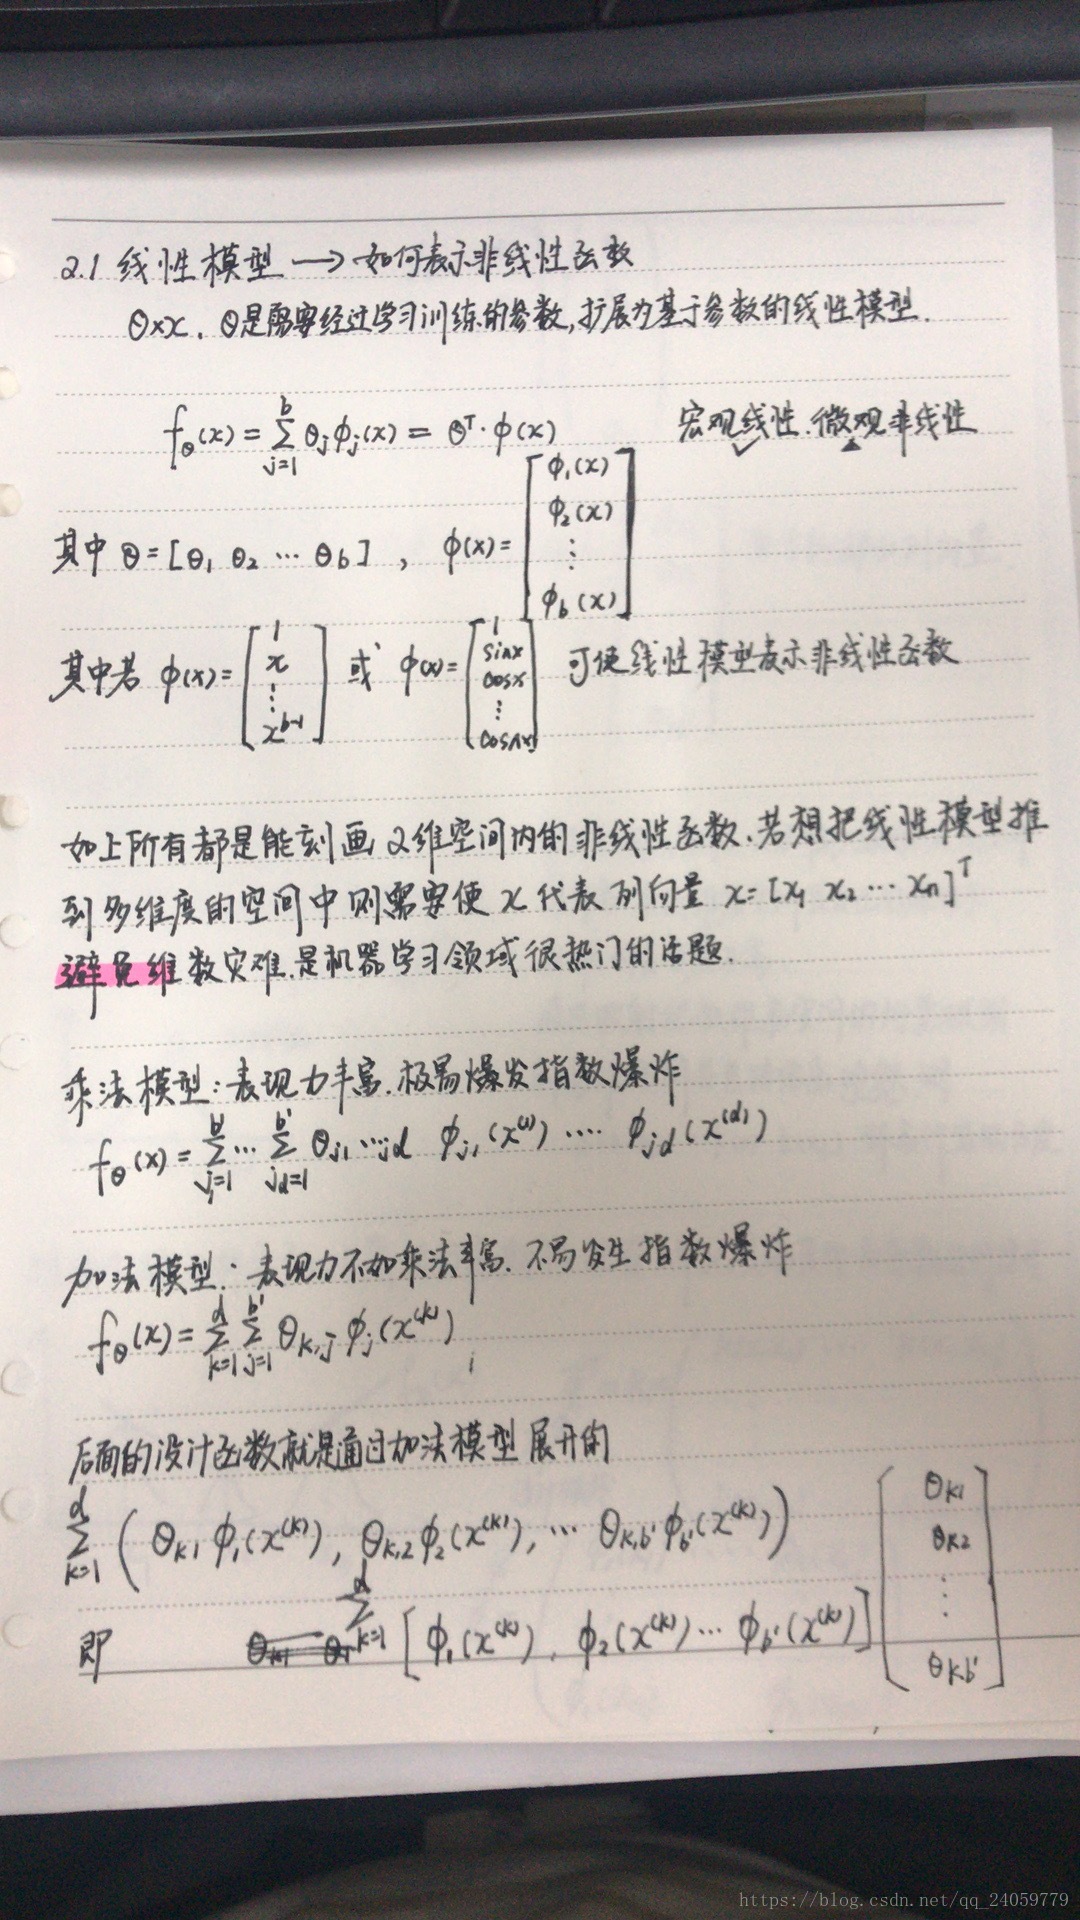 2.1 线性模型 → 如何表示非线性函数
θ×x. θ是需要经过学习训练的参数,扩展为基于参数的线性模型.
f_θ(x) = Σ_{j=1}^{b} θ_j φ_j(x) = θ^T · φ(x) 宏观线性.微观非线性
其中 θ = [θ_1 θ_2 ⋯ θ_b] , φ(x) = [φ_1(x) φ_2(x) ⋮ φ_b(x)]
其中若 φ(x) = [1 x ⋮ x^{b-1}] 或 φ(x) = [1 sinx cosx ⋮ cosnx] 可使线性模型表示非线性函数
如上所有都是能刻画2维空间内的非线性函数.若想把线性模型推
到多维度的空间中则需要使 x 代表列向量 x=[x_1 x_2 ⋯ x_n]^T
避免维数灾难.是机器学习领域很热门的话题.
乘法模型:表现力丰富.极易爆发指数爆炸
f_θ(x) = Σ_{j_1=1}^{b'} ⋯ Σ_{j_d=1}^{b'} θ_{j_1 ⋯ j_d} φ_{j_1}(x^{(1)}) ⋯⋅ φ_{j_d}(x^{(d)})
加法模型:表现力不如乘法丰富.不易发生指数爆炸
f_θ(x) = Σ_{k=1}^{d} Σ_{j=1}^{b'} θ_{k,j} φ_j(x^{(k)})
后面的设计函数就是通过加法模型展开的
Σ_{k=1}^{d} ( θ_{k1} φ_1(x^{(k)}) , θ_{k,2} φ_2(x^{(k)}) , ⋯ θ_{k,b'} φ_{b'}(x^{(k)}) )
即 Σ_{k=1}^{d} [φ_1(x^{(k)}) , φ_2(x^{(k)}) ⋯ φ_{b'}(x^{(k)})] [θ_{k1} θ_{k2} ⋮ θ_{k,b'}]
https://blog.csdn.net/qq_24059779